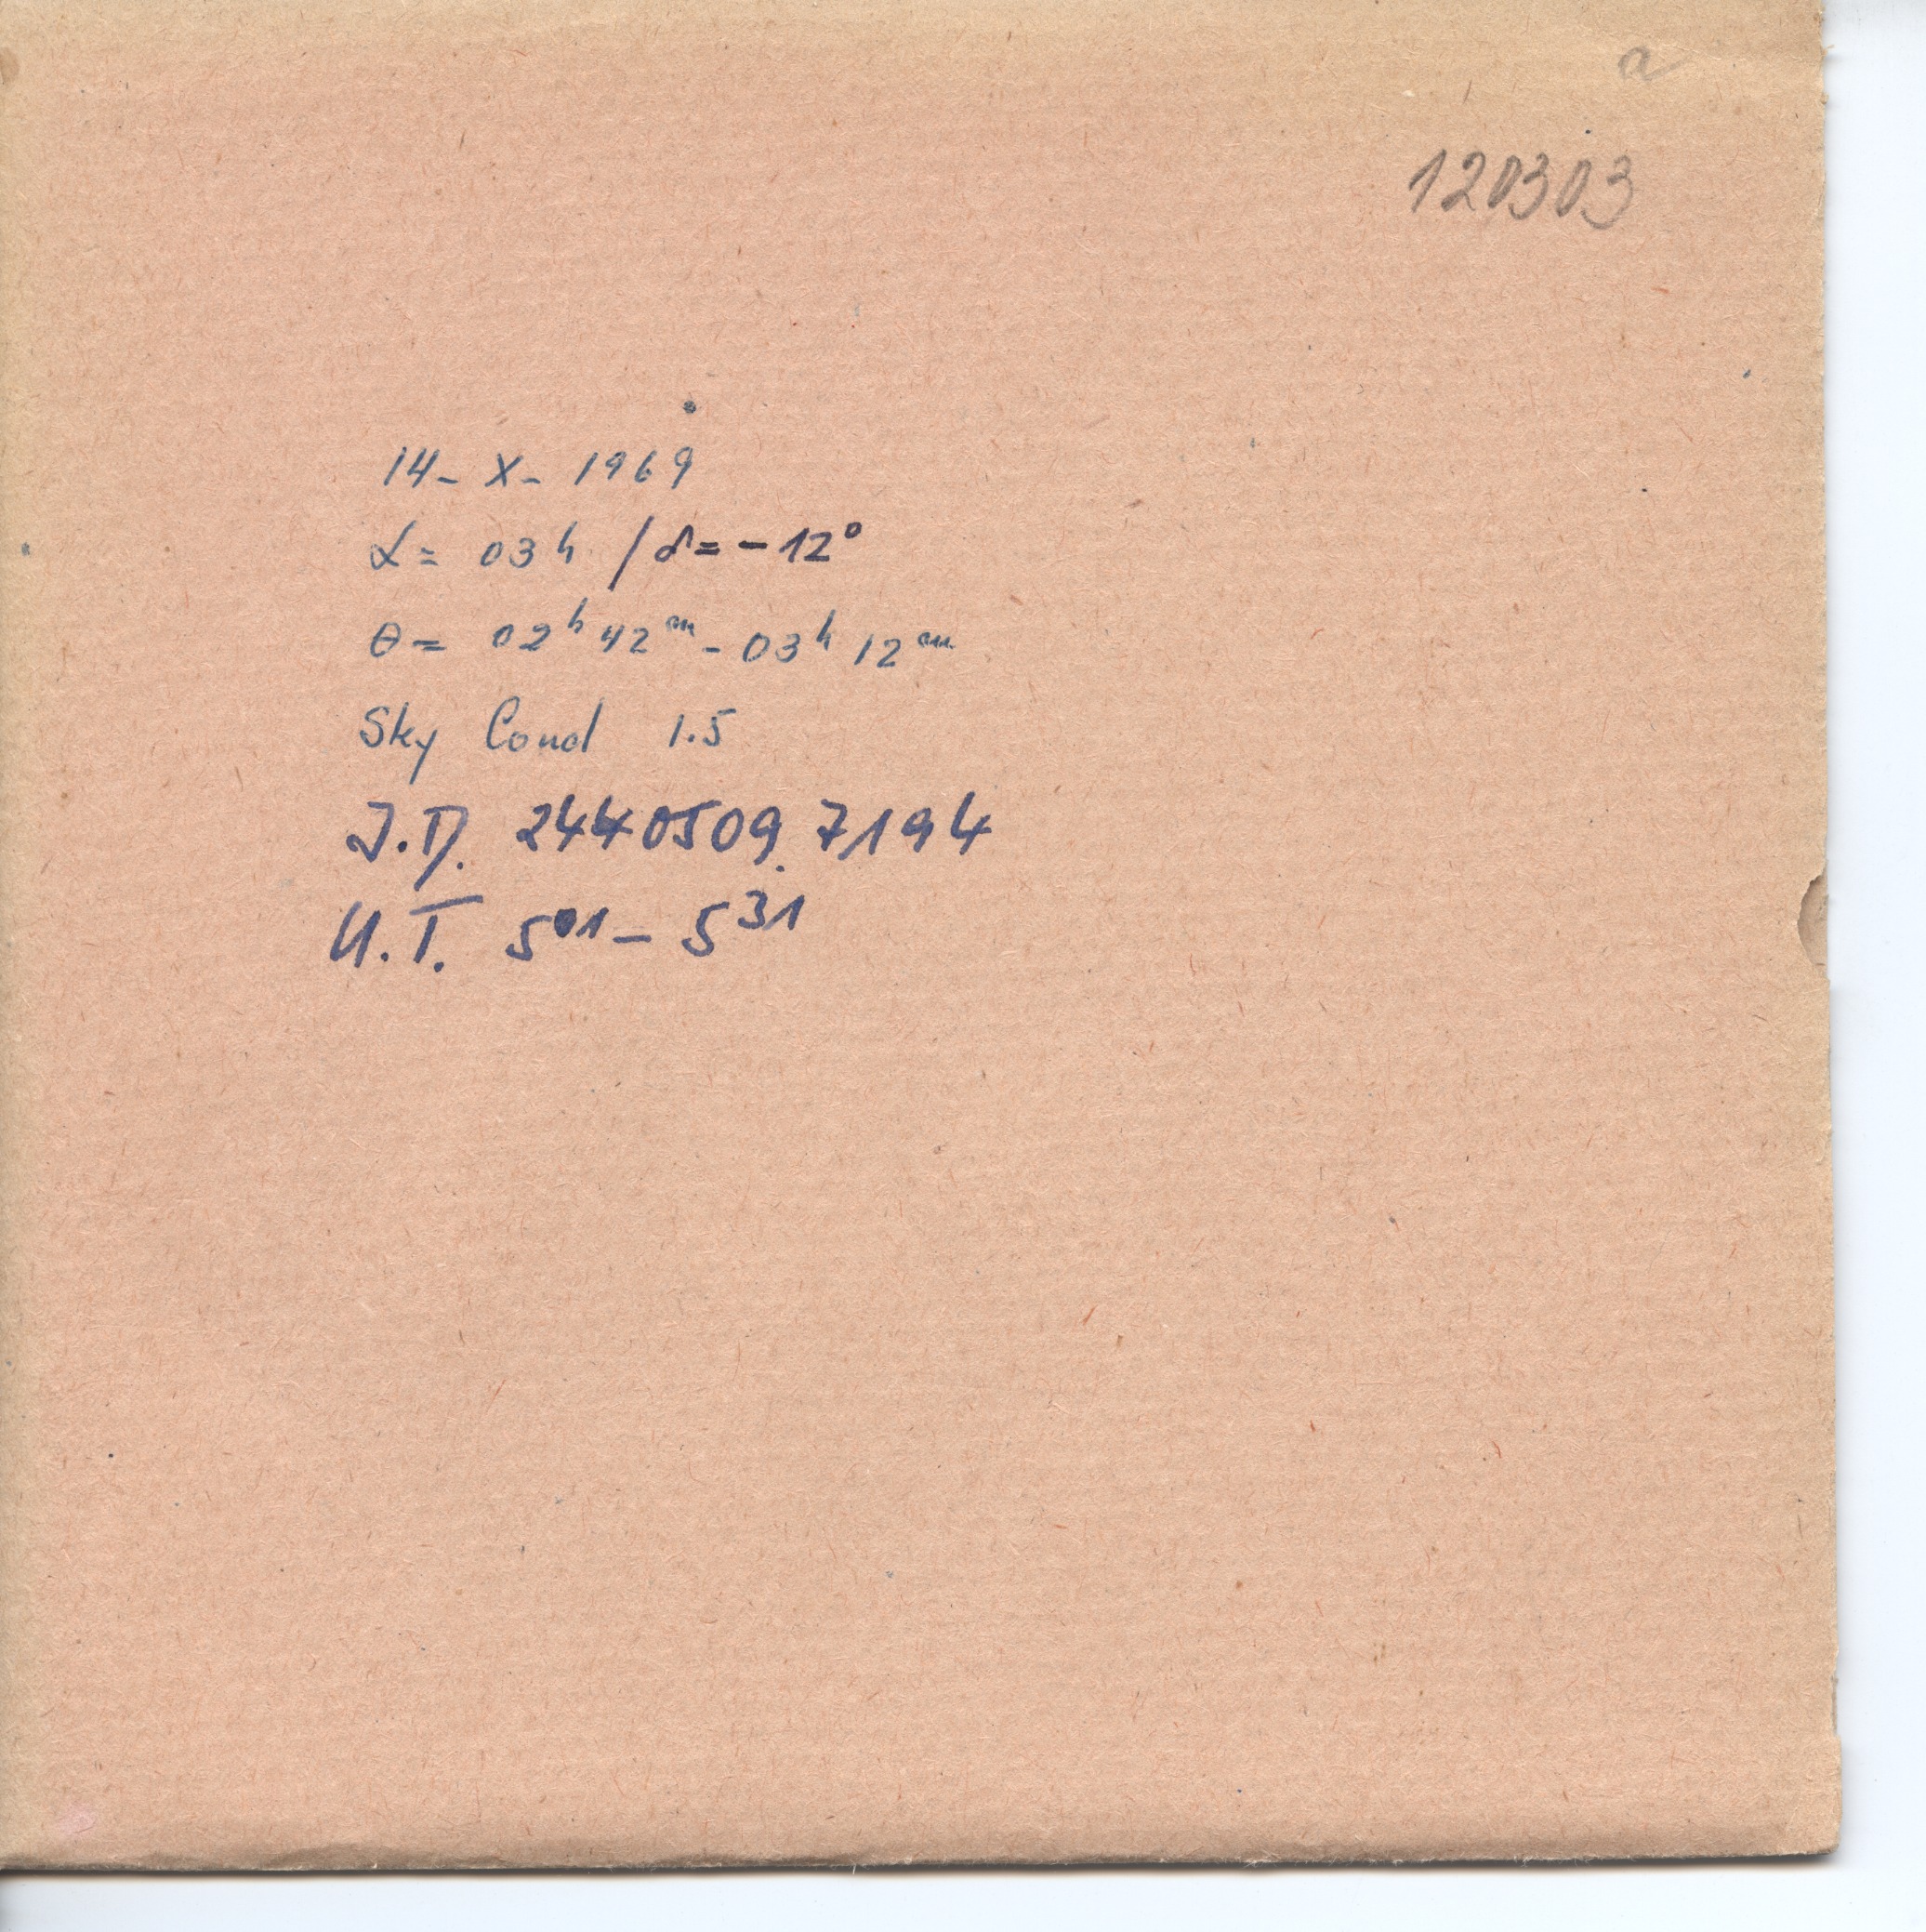 a
120303
14- X- 1969
α= 03h /δ= -12°
θ= 02ʰ 42ᵐ - 03ʰ 12ᵐ
Sky Cond 1.5
J.D. 2440509.7194
U.T. 5⁰¹ - 5³¹